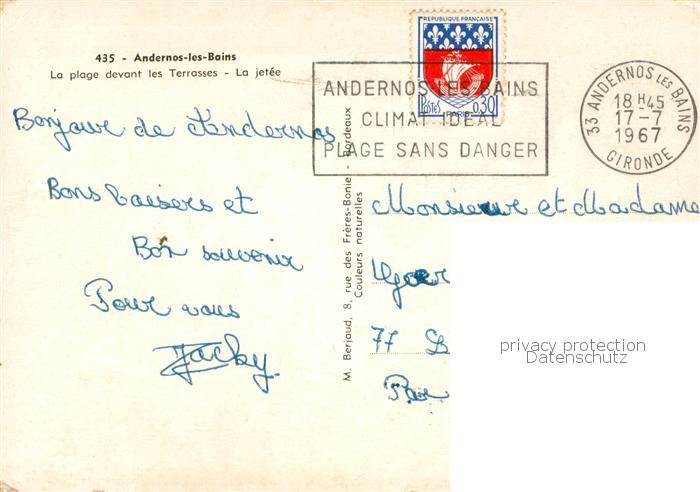 435 - Andernos-les-Bains
La plage devant les Terrasses - La jetée
Bonjour de Andernos
Bons baisers et
Bon souvenir
Pour vous
Jacky
M. Berjaud, 8, rue des Frères-Bonie - Bordeaux
Couleurs naturelles
REPUBLIQUE FRANÇAISE
POSTES 0,30
PARIS
ANDERNOS LES BAINS
CLIMAT IDEAL
PLAGE SANS DANGER
33 ANDERNOS LES BAINS
18 H 45
17-7
1967
GIRONDE
Monsieur et Madame
77
privacy protection
Datenschutz